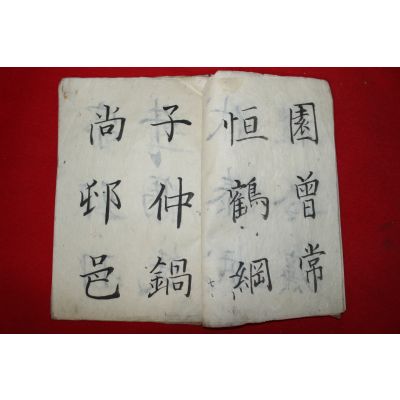 園曾常
恒鶴綱
子仲鍋
尚邨邑